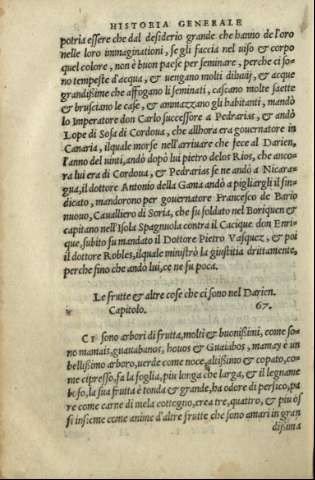 HISTORIA GENERALE
potria essere che dal desiderio grande che hanno de l'oro
nelle loro immaginationi, se gli faccia nel uiso & corpo
quel colore, non è buon paese per seminare, perche ci so-
no tempeste d'acqua, & uengono molti diluuij, & acque
grandissime che affogano li seminati, cascano molte saette
& brusciano le case, & ammazzano gli habitanti, mandò
lo Imperatore don Carlo successore a Pedrarias, & andò
Lope di Sosa di Cordoua, che allhora era gouernatore in
Canaria, il quale morse nell'arriuare che fece al Darien,
l'anno del uinti, andò dopò lui pietro delos Rios, che anco-
ra lui era di Cordoua, & Pedrarias se ne andò a Nicara-
gua, il dottore Antonio della Gama andò a pigliargli il sin-
dicato, mandorono per gouernatore Francesco de Bario
nuouo, Caualliero di Soria, che fu soldato nel Boriquen &
capitano nell'Isola Spagnuola contra il Cacique don Enri-
que, subito fu mandato il Dottore Pietro Vasquez, & poi
il dottore Robles, ilquale ministrò la giustitia drittamente,
perche fino che andò lui, ce ne fu poca.
Le frutte & altre cose che ci sono nel Darien.
Capitolo. 67.
CI sono arbori di frutta, molti & buonissimi, come so-
no mamais, guauabanos, houos & Guaiabos, mamay è un
bellissimo arboro, uerde come noce, altissimo & copato, co-
me cipresso, fa la foglia, piu longa che larga, & il legname
boso, la sua frutta è tonda & grande, ha odore di persico, pa
re come carne di mela cottogno, crea tre, quattro, & piu os
si insieme come anime d'altre frutte che sono amari in gran
dissima